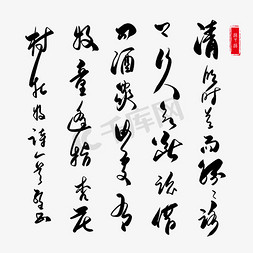 清明时节雨纷纷路
上行人欲断魂借
问酒家何处有
牧童遥指杏花
村杜牧诗